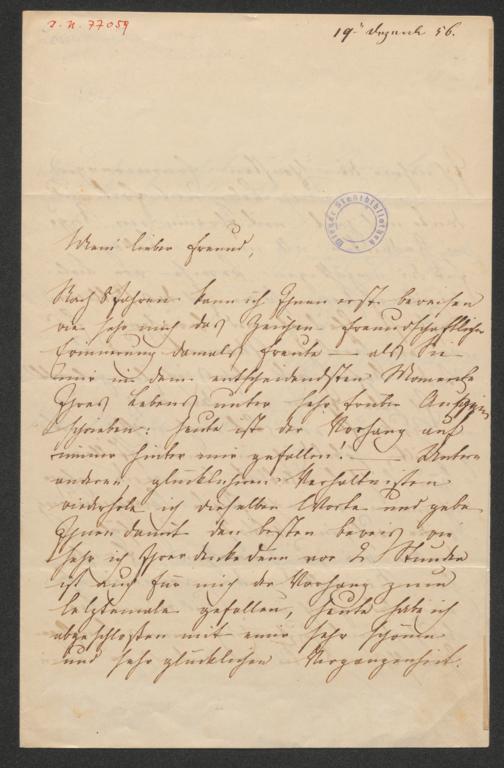 J. N. 77059
19. Dezemb 56.
Wiener Stadtbibliothek
Mein lieber Freund,
Nach 8 Jahren kann ich Ihnen erst beweisen
wie sehr mich das Zeichen freundschaftlicher
Erinnerung damals freute — als Sie
mir in dem entscheidendsten Momente
Ihres Lebens unter sehr trüben
schrieben: heute ist der Vorhang auf
immer hinter mir gefallen. — Unter
anderen, glücklicheren Verhältnissen
wiederhole ich dieselben Worte und gebe
Ihnen damit den besten Beweis wie
sehr ich Ihrer denke denn vor 2 Stunden
ist auch für mich der Vorhang zum
letztenmale gefallen, heute habe ich
abgeschlossen mit einer sehr schönen
und sehr glücklichen Vergangenheit.